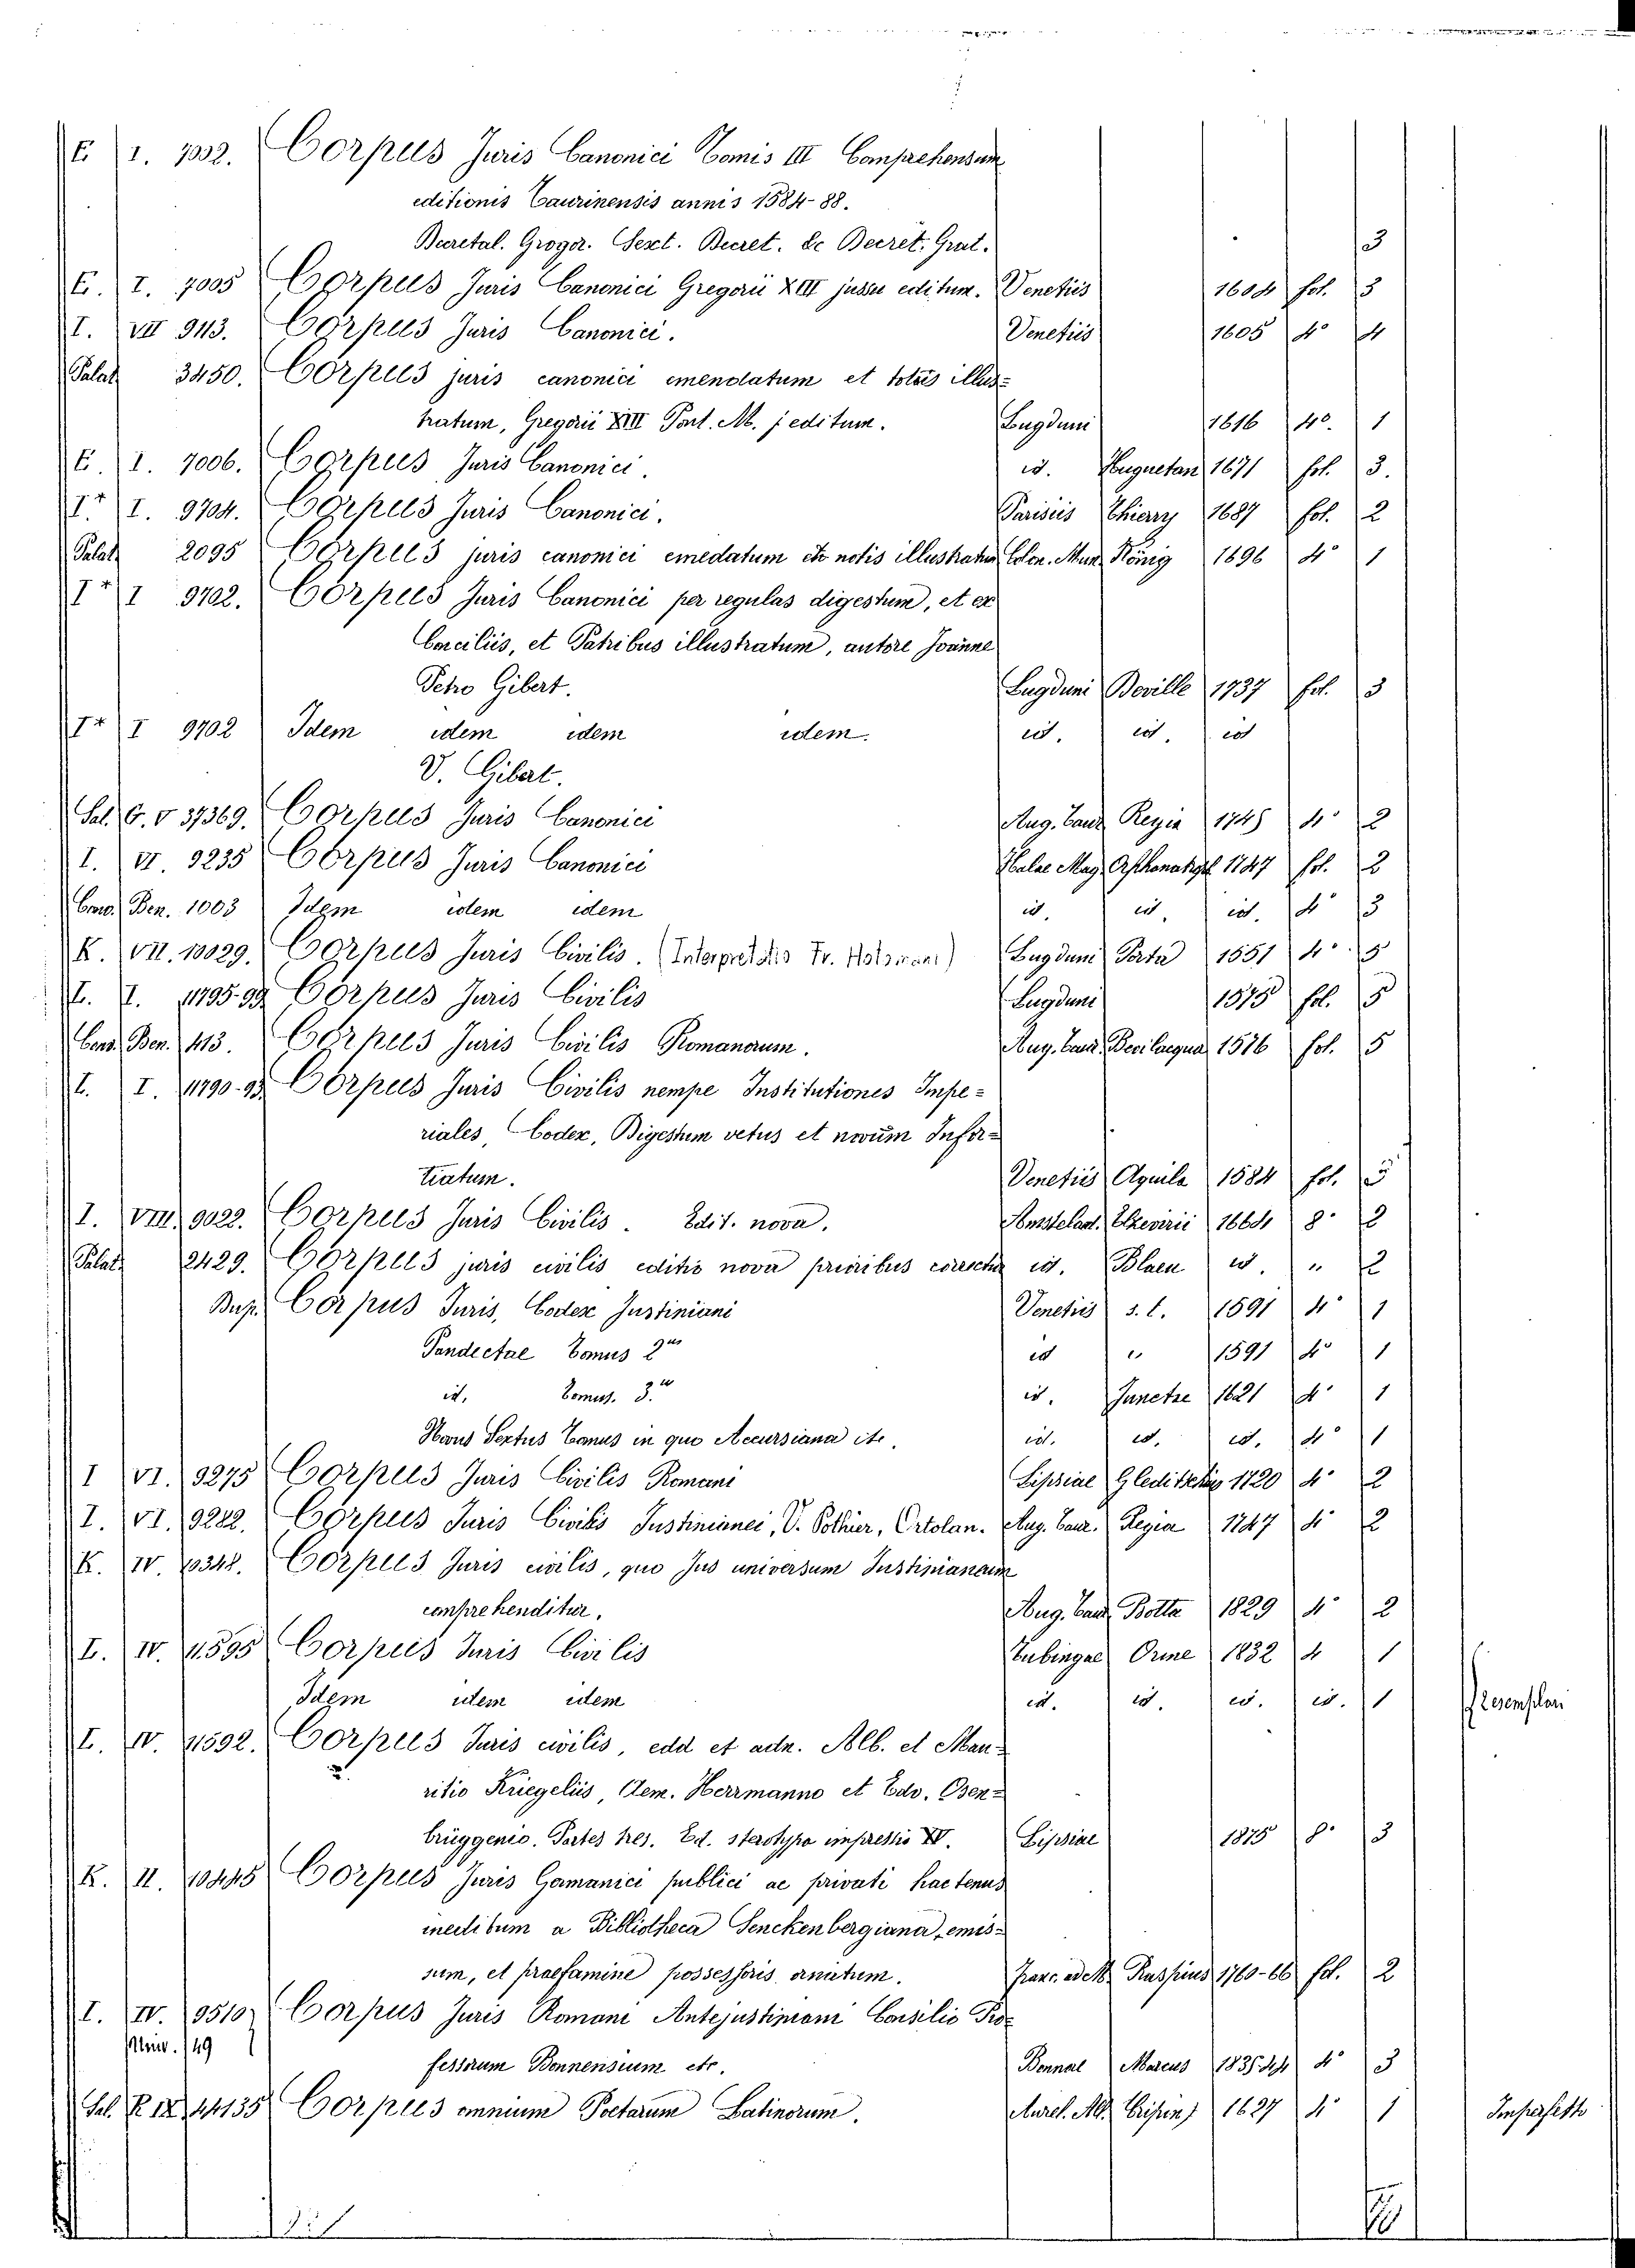 E I. 7032. Corpus Juris Canonici Tomis III Comprehensum
editionis Taurinensis annis 1584-88.
Decretal. Gregor. Sext. Decret. &c Decret. Grat. 3
E. I. 7005 Corpus Juris Canonici Gregorii XIII jussu editum. Venetiis 1604 fol. 3
I. VII 9113. Corpus Juris Canonici. Venetiis 1605 4° 4
Palat. 3450. Corpus juris canonici emendatum et notis illus=
tratum, Gregorii XIII Pont. M. j. editum. Lugduni 1616 4°. 1
E. I. 7006. Corpus Juris Canonici. id. Huguetan 1671 fol. 3.
I.+ I. 9704. Corpus Juris Canonici. Parisiis Thierry 1687 fol. 2
Palat. 2095 Corpus juris canonici emedatum etc notis illustratum Colon. Mun. König 1696 4° 1
I+ I 9702. Corpus Juris Canonici per regulas digestum, et ex
Conciliis, et Patribus illustratum, autore Joanne
Petro Gibert. Lugduni Boville 1737 fol. 3
I+ I 9702 Idem idem idem idem. id. id. id
V. Gibert.
Sal. G. V 37369. Corpus Juris Canonici Aug. Taur. Regia 1745 4° 2
I. VI. 9235 Corpus Juris Canonici Halae Mag. Orphanatroph. 1747 fol. 2
Cas. Ben. 1003 Idem idem idem id. id. id. 4° 3
K. VII. 10029. Corpus Juris Civilis. (Interpretatio Fr. Hotomani) Lugduni Porta 1551 4° 5
L. I. 11795-99 Corpus Juris Civilis Lugduni 1575 fol. 5
Cas. Ben. 413. Corpus Juris Civilis Romanorum. Aug. Taur. Bevilacqua 1576 fol. 5
L. I. 11790-95 Corpus Juris Civilis nempe Institutiones Impe=
riales, Codex, Digestum vetus et novum Infor=
tiatum. Venetiis Aquila 1584 fol. 5
I. VIII. 9022. Corpus Juris Civilis. Edit. nova. Amstelod. Elzevirii 1664 8° 2
Palat. 2429. Corpus juris civilis editio nova prioribus correctior id. Blaeu id. " 2
Dup. Corpus Juris, Codex Justiniani Venetiis s.t. 1591 4° 1
Pandectae Tomus 2us id " 1591 4° 1
id. Tomus. 3.us id. Junctae 1621 4° 1
Novus Sextus Tomus in quo Accursiana etc. id. id. id. 4° 1
I VI. 9275 Corpus Juris Civilis Romani Lipsiae Gleditschius 1720 4° 2
I. VI. 9282. Corpus Juris Civilis Justinianei, V. Pothier, Ortolan. Aug. Taur. Regia 1747 4° 2
K. IV. 10348. Corpus Juris civilis, quo Jus universum Justinianeum
comprehenditur. Aug. Taur. Botta 1829 4° 2
L. IV. 11595 Corpus Juris Civilis Tubingae Orme 1832 4 1
Idem idem idem id. id. id. id. 1
L. IV. 11592. Corpus Juris civilis, edd et adn. Alb. et Mau=
ritio Kriegeliis, Aem. Herrmanno et Edv. Osen=
brüggenio. Partes tres. Ed. sterotypa impressio XV. Lipsiae 1875 8° 3
K. II. 10445 Corpus Juris Germanici publici ac privati hactenus
ineditum a Bibliotheca Senckenbergiana, emis=
sum, et praefamine possessoris ornatum. Franc. ad M. Raspius 1760-66 fol. 2
I. IV. 9510 Corpus Juris Romani Antejustiniani Consilio Pro=
Univ. 149
fessorum Bonnensium etc. Bonnae Marcus 1835-44 4° 3
Sal. R IX 44135 Corpus omnium Poetarum Latinorum. Aurel. All. Crispin 1627 4° 1 Imperfetto